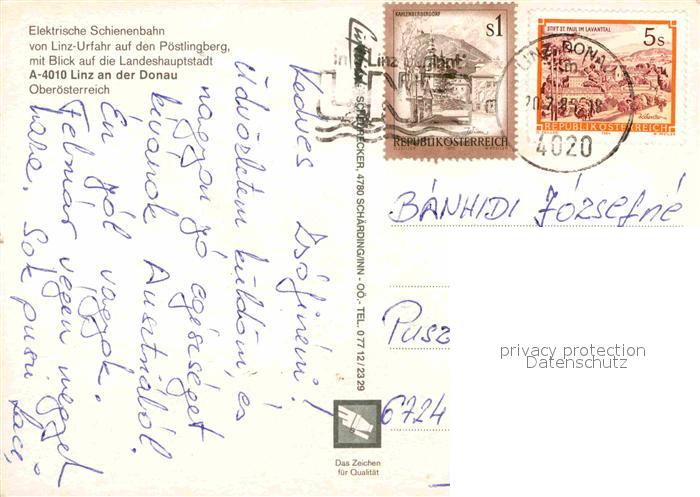 Elektrische Schienenbahn
von Linz-Urfahr auf den Pöstlingberg,
mit Blick auf die Landeshauptstadt
A-4010 Linz an der Donau
Oberösterreich
Kedves Dsófiném!
Üdvözletem küldöm, és
nagyon jó egészséget
kívánok Ausztriából.
Én jól vagyok.
Február végén megyek
haza. Sok puszi Laci
KAHLENBERGERDORF
S1
REPUBLIK ÖSTERREICH
STIFT ST. PAUL IM LAVANTTAL
5s
REPUBLIK ÖSTERREICH
LINZ, DONAU
4020
4780 SCHÄRDING/INN - OÖ. - TEL. 0 77 12 / 23 29
BÁNHIDI Józsefné
Pusz
6724
privacy protection
Datenschutz
Das Zeichen
für Qualität